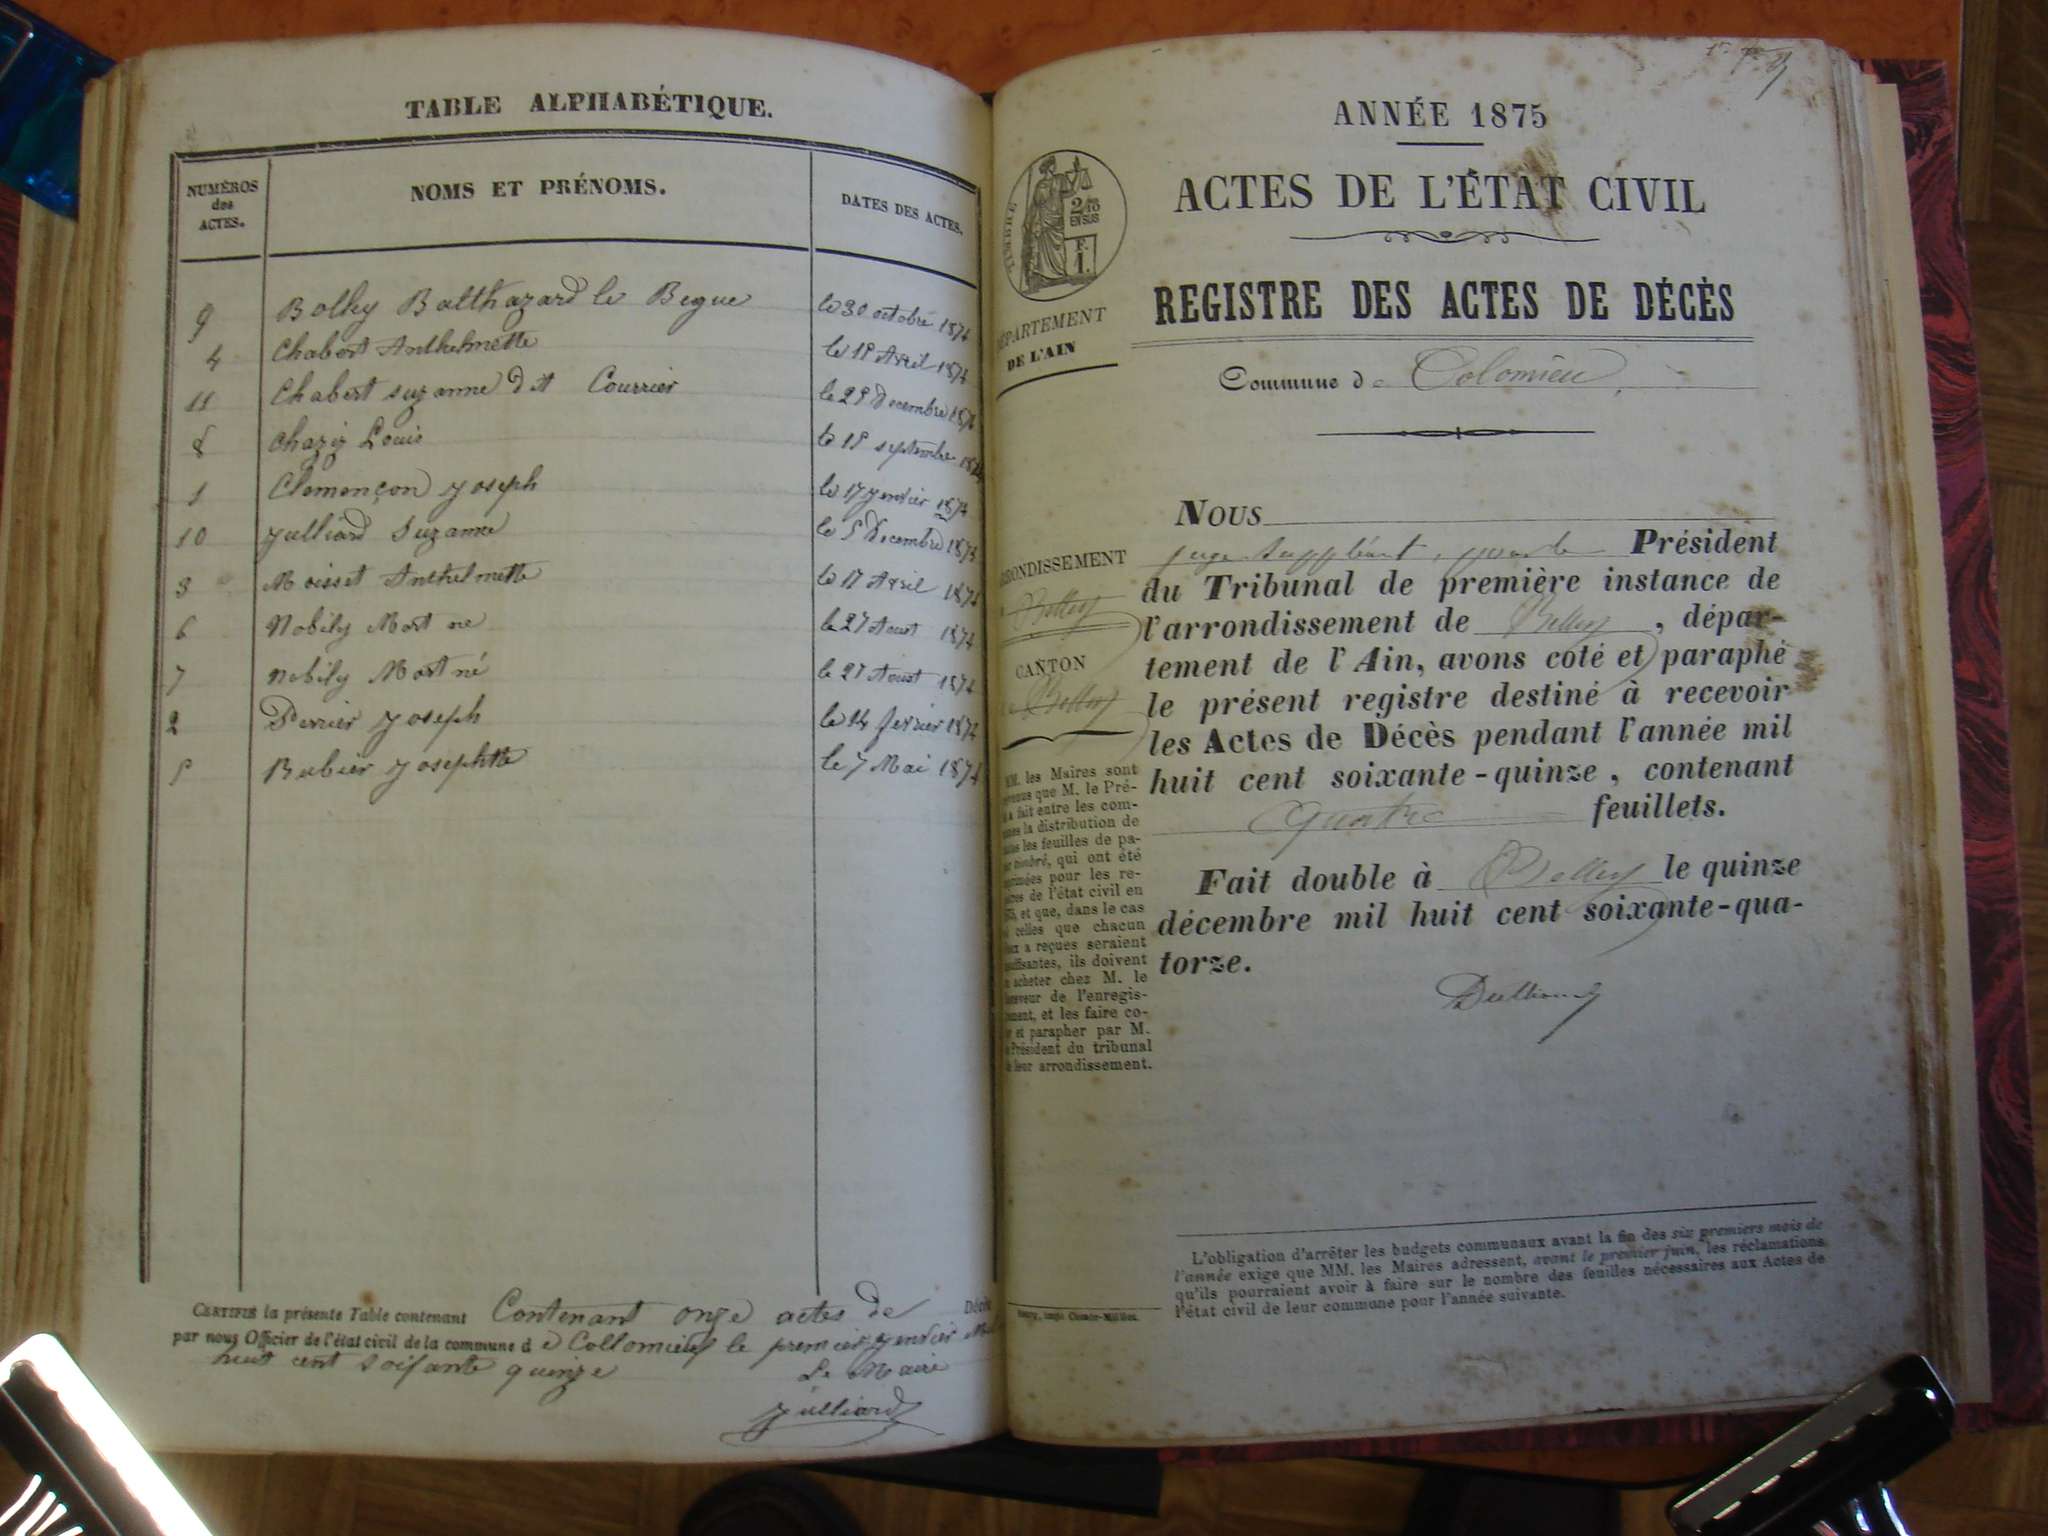 TABLE ALPHABÉTIQUE.
NUMÉROS des ACTES. NOMS ET PRÉNOMS. DATES DES ACTES.
9 Bolley Balthazard le Begue le 30 octobre 1874
4 Chabert Anthelmette le 18 Avril 1874
11 Chabert suzanne dit Courrier le 29 Decembre 1874
8 Chaziz Louis le 18 septembre 1874
1 Clemençon Joseph le 17 Jenvier 1874
10 Julliard Suzanne le 5 Decembre 1874
3 Moisset Anthelmette le 17 Avril 1874
6 Nobily Mort ne le 27 Aoust 1874
7 Nobily Mort né le 27 Aoust 1874
2 Perrier Joseph le 14 fevrier 1874
5 Rubier Josephtte le 7 Mai 1874
CERTIFIÉ la présente Table contenant Contenant onze actes de Décès
par nous Officier de l'état civil de la commune d e Collomieu le premier Jenvier Mil
huit cent soixante quinze Le Maire
Julliard
ANNÉE 1875
ACTES DE L'ÉTAT CIVIL
REGISTRE DES ACTES DE DÉCÈS
TIMBRE
2/10 EN SUS
F. 1.
DÉPARTEMENT
DE L'AIN
Commune de Colomieu
ARRONDISSEMENT
Belley
CANTON
Belley
MM. les Maires sont
prévenus que M. le Pré-
fet a fait entre les com-
munes la distribution de
toutes les feuilles de pa-
pier timbré, qui ont été
imprimées pour les re-
gistres de l'état civil en
1875, et que, dans le cas
où celles que chacun
d'eux a reçues seraient
insuffisantes, ils doivent
en acheter chez M. le
Receveur de l'enregis-
trement, et les faire co-
ter et parapher par M.
le Président du tribunal
de leur arrondissement.
NOUS
juge suppléant, pour le Président
du Tribunal de première instance de
l'arrondissement de Belley, dépar-
tement de l'Ain, avons coté et paraphé
le présent registre destiné à recevoir
les Actes de Décès pendant l'année mil
huit cent soixante-quinze, contenant
quatre feuillets.
Fait double à Belley le quinze
décembre mil huit cent soixante-qua-
torze.
L'obligation d'arrêter les budgets communaux avant la fin des six premiers mois de
l'année exige que MM. les Maires adressent, avant le premier juin, les réclamations
qu'ils pourraient avoir à faire sur le nombre des feuilles nécessaires aux Actes de
l'état civil de leur commune pour l'année suivante.